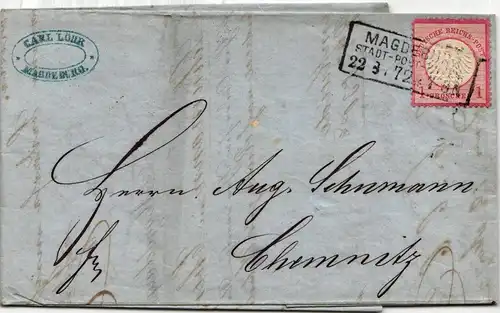 CARL LOHR
MAGDEBURG.
MAGDE
STADT-PO
22 3 72
DEUTSCHE REICHS-PO
1
1
Herrn Aug. Schumann
Chemnitz